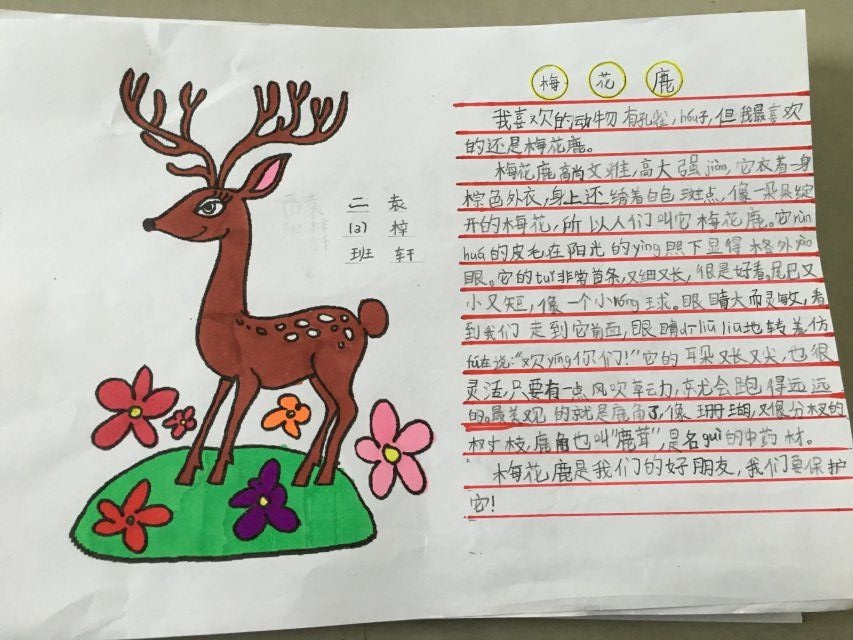 梅 花 鹿
我喜欢的动物有孔雀,hóu子,但我最喜欢
的还是梅花鹿。
梅花鹿高尚文雅,高大强jiàn,它衣着一身
棕色外衣,身上还绣着白色斑点,像一朵朵绽
开的梅花,所以人们叫它梅花鹿。它rùn
huá的皮毛在阳光的yìng照下显得格外
眼。它的tuǐ非常苗条,又细又长,很是好看,尾巴又
小又短,像一个小róng球。眼睛大而灵敏,看
到我们走到它前面,眼睛dī liū liū地转着仿
fú在说:“欢yíng你们!”它的耳朵又长又尖,也很
灵活,只要有一点风吹草动,就会跑得远远
的。最美观的就是鹿角了,像珊瑚,又像分杈的
树枝,鹿角也叫“鹿茸”,是名guì的中药材。
梅花鹿是我们的好朋友,我们要保护
它!
二(3)班
袁梓轩